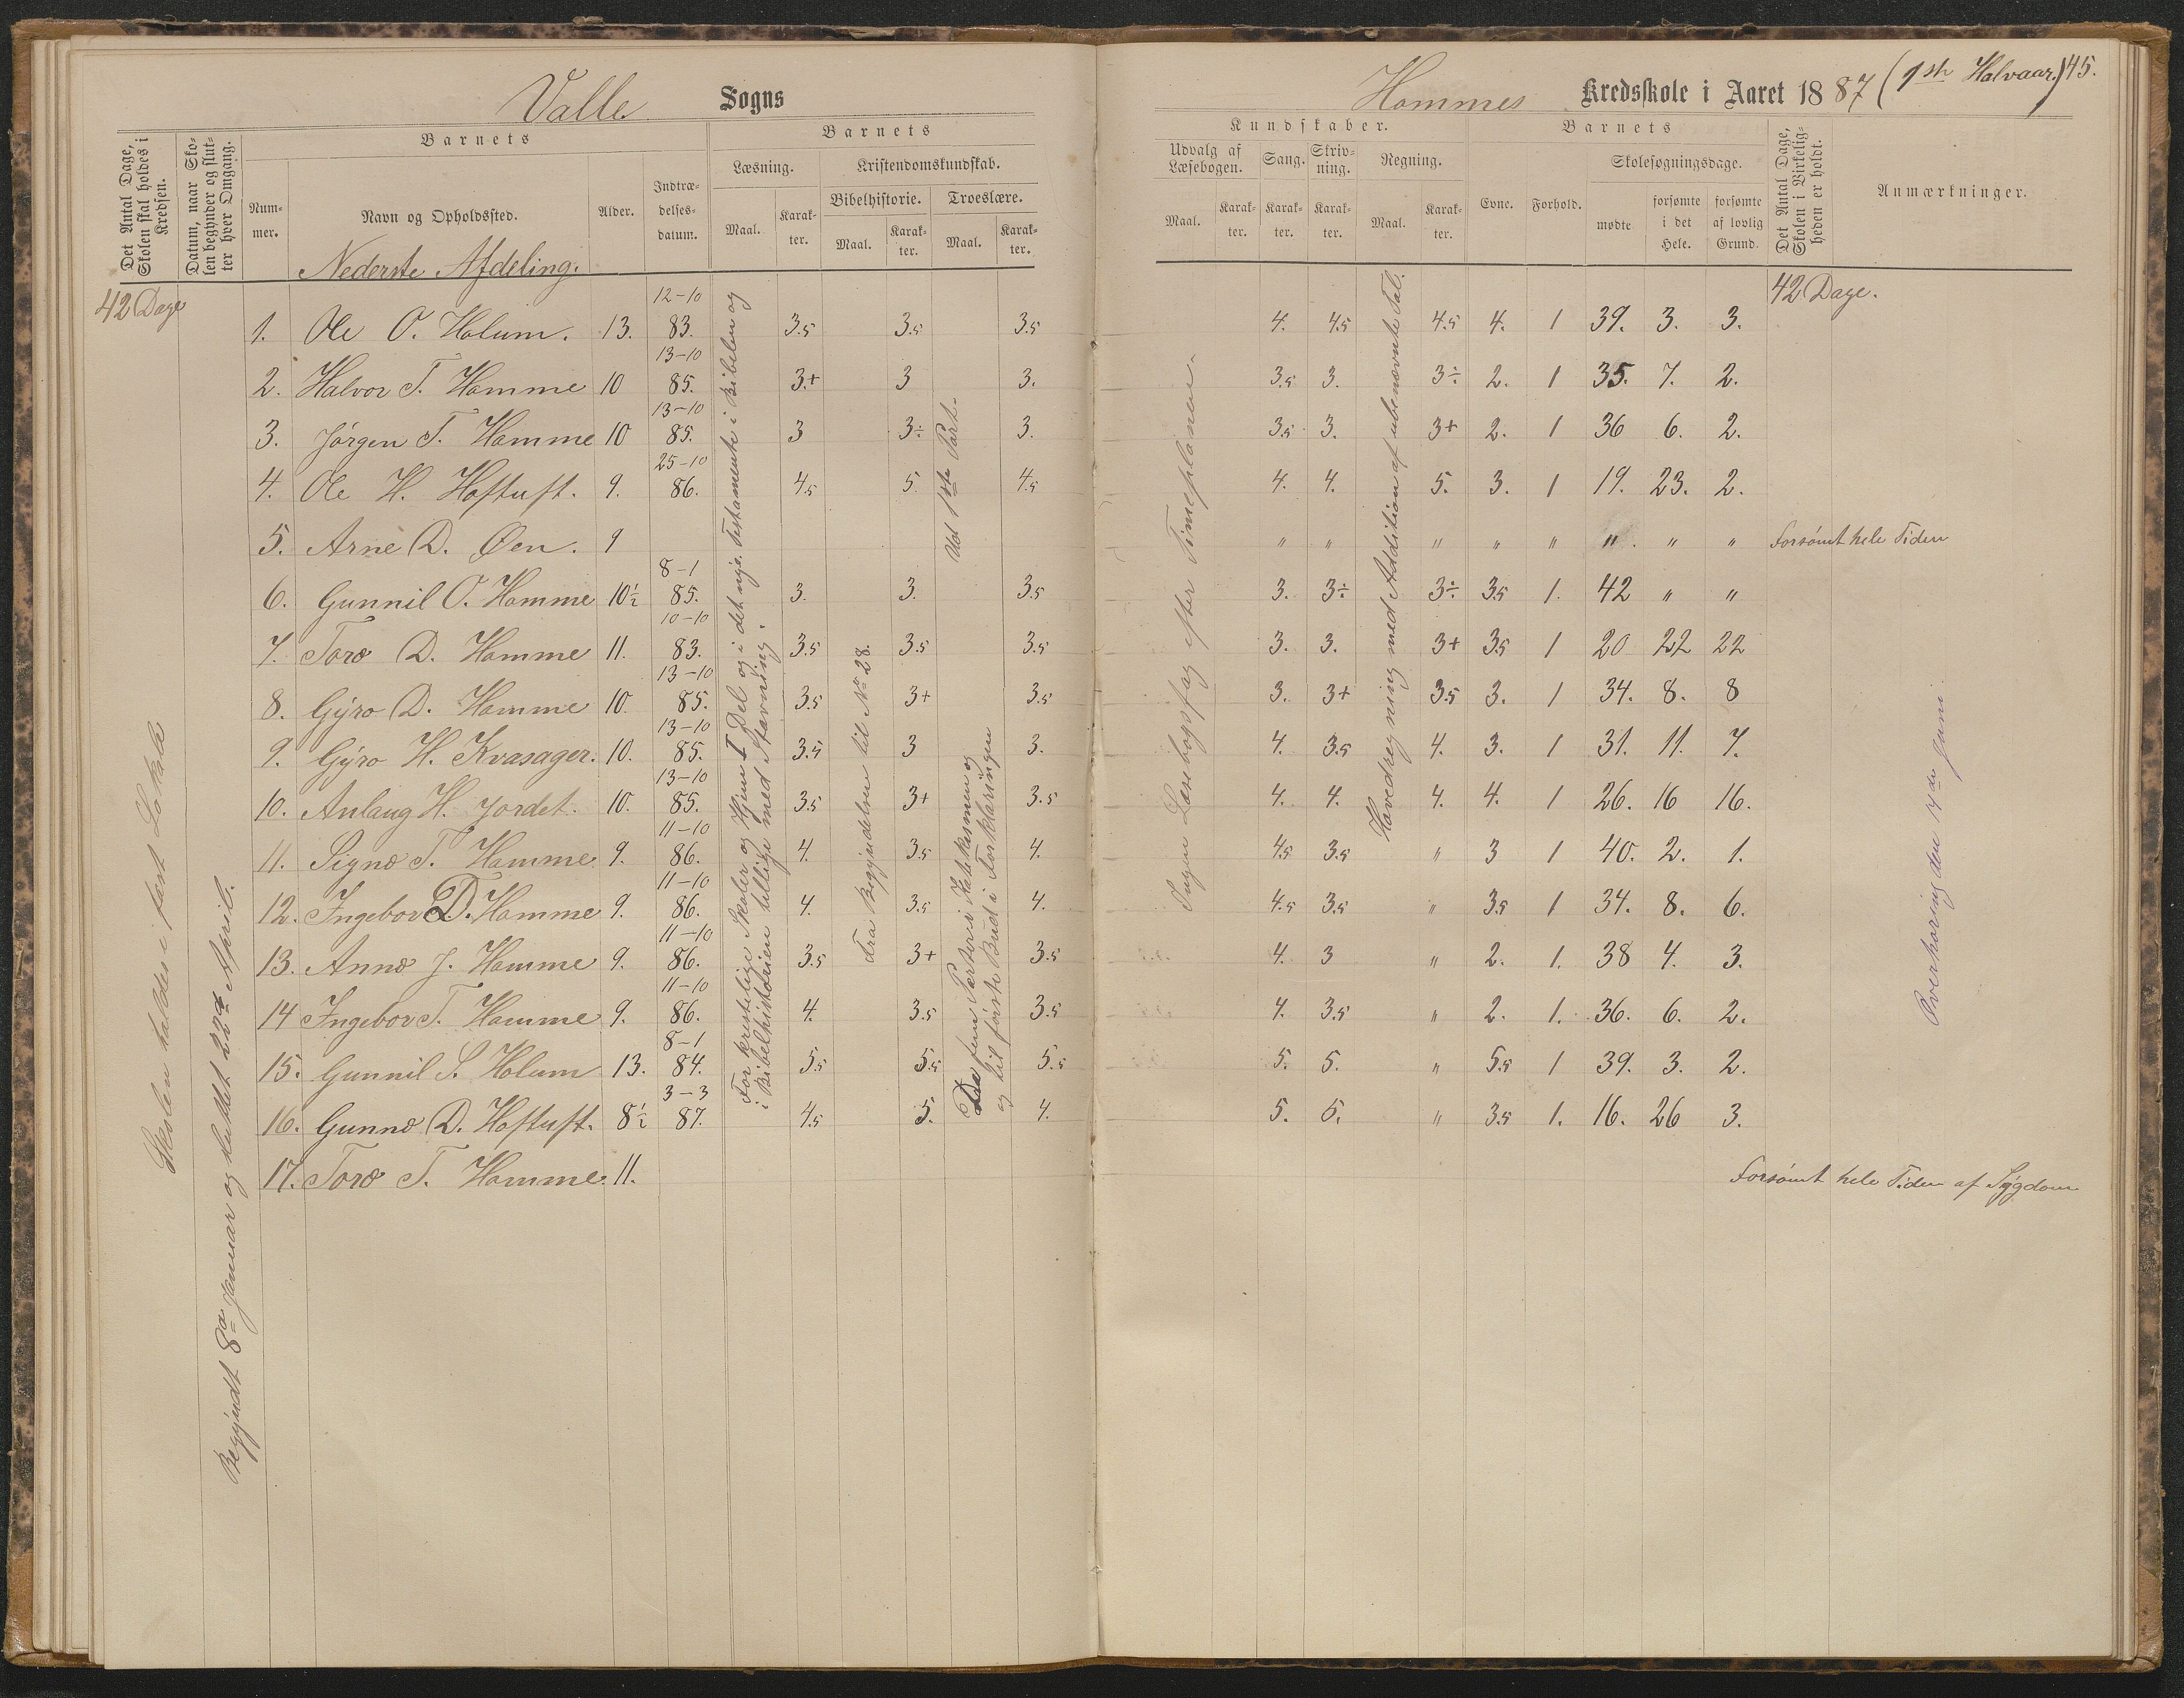 Valle Sogns
Hommes Kredsskole i Aaret 1887 (1ste Halvaar.) 45.
Det Antal Dage, Skolen skal holdes i Kredsen.
Datum, naar Skolen begynder og slutter hver Omgang.
Barnets
Nummer.
Navn og Opholdssted.
Alder.
Indtrædelsesdatum.
Barnets
Læsning.
Maal.
Karakter.
Kristendomskundskab.
Bibelhistorie.
Maal.
Karakter.
Troeslære.
Maal.
Karakter.
Kundskaber.
Udvalg af Læsebogen.
Maal.
Karakter.
Sang.
Karakter.
Skrivning.
Karakter.
Regning.
Maal.
Karakter.
Barnets
Evne.
Forhold.
Skolesøgningsdage.
mødte
forsømte i det Hele.
forsømte af lovlig Grund.
Det Antal Dage, Skolen i Virkeligheden er holdt.
Anmærkninger.
Nederste Afdeling.
42 Dage
42 Dage.
1. Ole O. Holum. 13. 12-10 83. 3.5 3.5 3.5 4. 4.5 4.5 4. 1 39. 3. 3.
2. Halvor T. Homme 10 13-10 85. 3.+ 3 3. 3.5 3. 3÷ 2. 1 35. 7. 2.
3. Jørgen T. Homme 10 13-10 85. 3 3÷ 3. 3.5 3. 3+ 2. 1 36 6. 2.
4. Ole H. Hoftuft. 9. 25-10 86. 4.5 5. 4.5 4. 4. 5. 3. 1 19. 23. 2.
5. Arne D. Øen. 9 " " " " " " " " Forsømt hele Tiden
6. Gunnil O. Homme 10½ 8-1 85. 3. 3. 3.5 3. 3÷ 3÷ 3.5 1. 42 " "
7. Toro D. Homme 11. 10-10 83. 3.5 3.5 3.5 3. 3. 3+ 3.5 1 20 22 22
8. Gyro D. Homme 10. 13-10 85. 3.5 3+ 3.5 3. 3+ 3.5 3. 1 34. 8. 8
9. Gyro H. Kvasager. 10. 13-10 85. 3.5 3 3. 4. 3.5 4. 3. 1 31. 11. 7.
10. Anlaug H. Jordet. 10. 13-10 85. 3.5 3+ 3.5 4. 4. 4. 4. 1 26. 16 16.
11. Signe T. Homme 9. 11-10 86. 4. 3.5 4. 4.5 3.5 " 3 1 40. 2. 1.
12. Ingebor D. Homme 9. 11-10 86. 4. 3.5 4. 4.5 3.5 " 3.5 1 34. 8. 6.
13. Anne J. Homme 9. 11-10 86. 3.5 3+ 3.5 4. 3 " 2. 1. 38 4. 3.
14 Ingebor T. Homme 9. 11-10 86. 4. 3.5 3.5 4. 3.5 " 2. 1. 36. 6. 2.
15. Gunnil S. Holum 13. 8-1 84. 5.5 5.5 5.5 5. 5. " 5.5 1 39. 3. 2.
16. Gunne D. Hoftuft. 8½ 3-3 87. 4.5 5. 4. 5. 5. " 3.5 1. 16. 26 3.
17. Toro T. Homme. 11. Forsømt hele Tiden af Sygdom
Skolen holdes i fast Lokale
Begyndt 8de Januar og sluttet 22de April.
Forskjellige Skoler og Hjem I Del og i det nye Testamente i Bibelen og
i Bibelhistorien tillige med Stavning.
Fra Begyndelsen til No 28.
Ud 1ste Part.
De fem Parter i Katekismen og
og til første Bud i Forklaringen
Ingen Læsebogsfag efter Timeplanen.
Hovedregning med Addition af ubenævnte Tal.
Overhøring den 14de Juni.